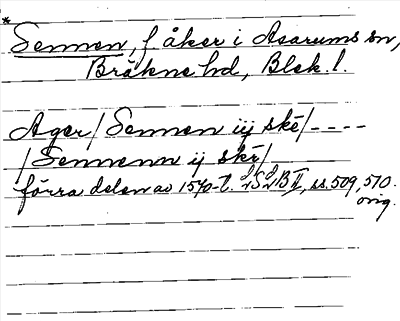 *
Sennen, f åker i Asarums sn,
Bräkne hd, Blek.l.
Ager/Sennen iij ske/----
/Sennenn ij ske/
förra delen av 1570-t. LSLB II, ss. 509, 510.
orig.